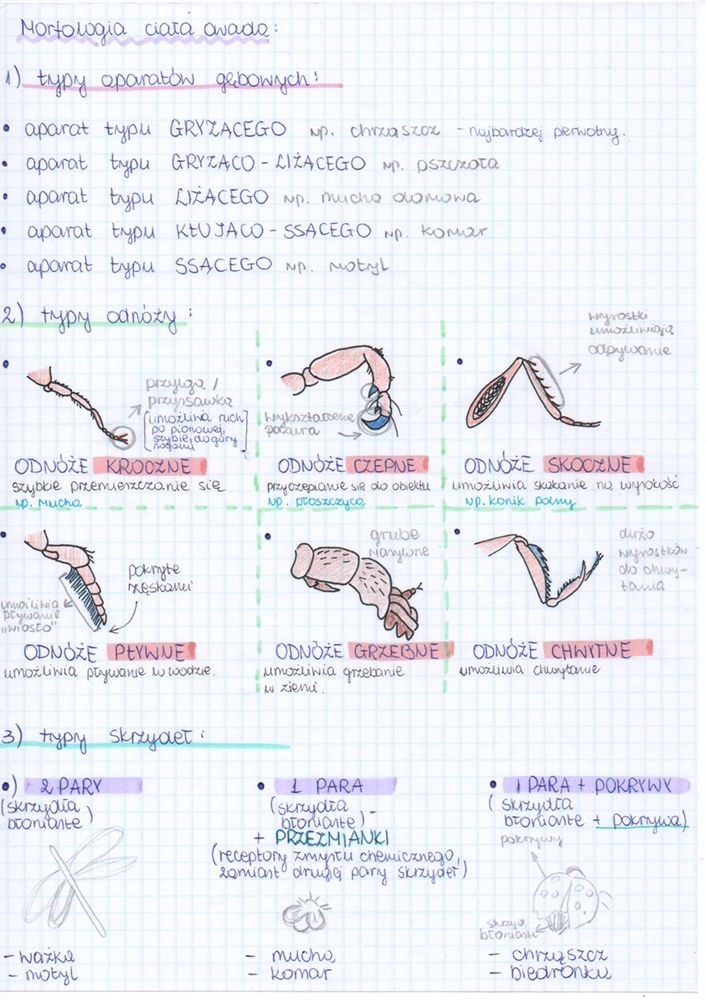 Morfologia ciała owada:
1) typy aparatów gębowych:
• aparat typu GRYZĄCEGO np. chrząszcz - najbardziej pierwotny.
• aparat typu GRYZĄCO - LIŻĄCEGO np. pszczoła
• aparat typu LIŻĄCEGO np. mucha domowa
• aparat typu KŁUJĄCO - SSĄCEGO np. komar
• aparat typu SSĄCEGO np. motyl
2) typy odnóży:
przylga /
przyssawka
[umożliwia ruch
po pionowej,
szybie, do góry
nogami]
ODNÓŻE KROCZNE
szybkie przemieszczanie się
np. mucha
wykształcenie
pazura
ODNÓŻE CZEPNE
przyczepianie się do obiektu
np. pluszczyca
wyrostki
umożliwiają
odpływanie
ODNÓŻE SKOCZNE
umożliwia skakanie na wysokość
np. konik polny
pokryte
rzęskami
umożliwia
pływanie
"wiosło"
ODNÓŻE PŁYWNE
umożliwia pływanie w wodzie.
grube
masywne
ODNÓŻE GRZEBNE
umożliwia grzebanie
w ziemi.
dużo
wyrostków
do chwy-
tania
ODNÓŻE CHWYTNE
umożliwia chwytanie
3) typy skrzydeł:
•) 2 PARY
(skrzydła
błoniaste)
- ważka
- motyl
• 1 PARA
(skrzydła
błoniaste) -
+ PRZEZMIANKI
(receptory zmysłu chemicznego,
zamiast drugiej pary skrzydeł)
- mucha
- komar
• 1 PARA + POKRYWY
(skrzydła
błoniaste + pokrywa)
pokrywy
skrzydł
błoniaste
- chrząszcz
- biedronka